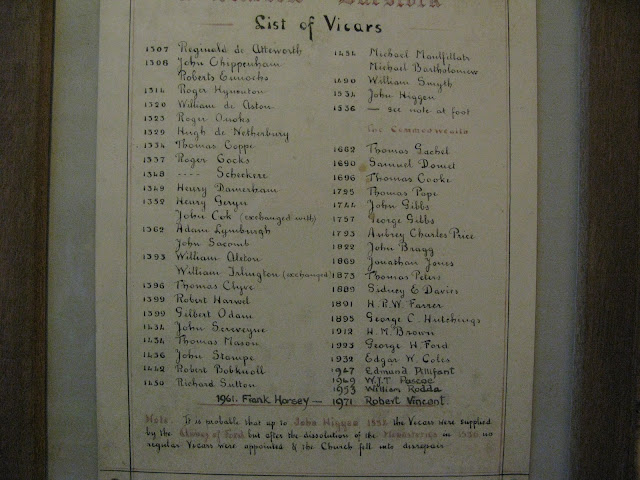 List of Vicars
1307 Reginald de Atteworth
1308 John Chippenham
Roberts
1314 Roger Kynenton
1320 William de Aston
1323 Roger Onoke
1329 Hugh de Netherbury
1334 Thomas Coppe
1337 Roger Cocks
1348 ---- Scheckere
1349 Henry Damerham
1352 Henry Geryn
John Cok (exchanged with)
1362 Adam Lymburgh
John Sacomb
1393 William Alston
William Irlington (exchanged)
1396 Thomas Clyve
1399 Robert Harwil
1399 Gilbert Odam
1434 John Screveyne
1434 Thomas Mason
1436 John Stampe
1442 Robert Bobknoll
1450 Richard Sutton
Michael Moulfillats
Michael Bartholomew
1490 William Smyth
1534 John Higgen
1536 — see note at foot
The Commonwealth
1662 Thomas Gachel
1690 Samuel Doniet
1696 Thomas Cooke
Thomas Pope
1744 John Gibbs
1757 George Gibbs
1793 Aubrey Charles Price
1822 John Bragg
1869 Jonathan Jones
1873 Thomas Peters
1889 Sidney E Davies
1891 H.P.W. Farrer
1895 George C. Hutchings
1912 H.M. Brown
1923 George H. Ford
1932 Edgar W. Coles
1947 Edmund Pillifant
1949 W.J.T. Pascoe
1953 William Rodda
1961. Frank Horsey — 1971 Robert Vincent.
Note. It is probable that up to John Higgen the Vicars were supplied
by the Abbey of Ford but after the dissolution of the Monasteries in 1536 no
regular Vicars were appointed & the Church fell into disrepair